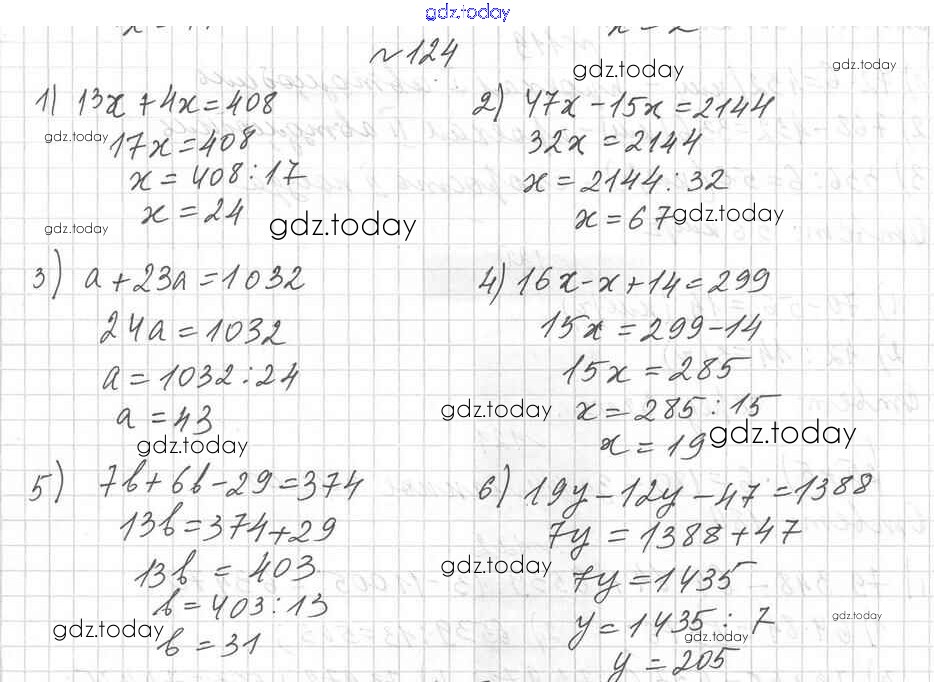 gdz.today
№124
gdz.today
gdz.today
1) 13x+4x=408
17x=408
x=408:17
x=24
gdz.today
gdz.today
gdz.today
2) 47x-15x=2144
32x=2144
x=2144:32
x=67
gdz.today
3) a+23a=1032
24a=1032
a=1032:24
a=43
gdz.today
4) 16x-x+14=299
15x=299-14
15x=285
x=285:15
x=19
gdz.today
gdz.today
5) 7b+6b-29=374
13b=374+29
13b=403
b=403:13
b=31
gdz.today
6) 19y-12y-47=1388
7y=1388+47
7y=1435
y=1435:7
y=205
gdz.today
gdz.today
gdz.today